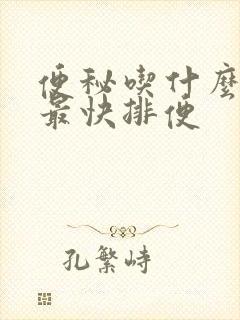 便秘喫什麽
最快排便
孔繁峙